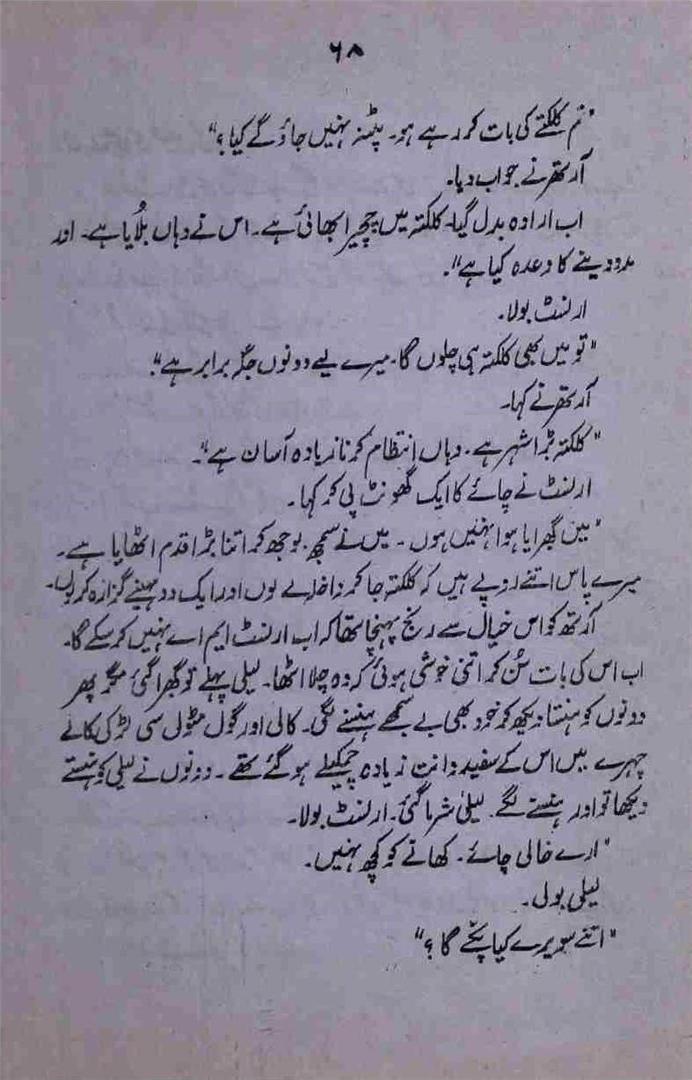 ۶۸
"تم کلکتے کی بات کر رہے ہو۔ پٹنہ نہیں جاؤ گے کیا؟"
آرتھر نے جواب دیا۔
اب ارادہ بدل گیا۔ کلکتہ میں چچیرا بھائی ہے۔ اس نے وہاں بلایا ہے۔ اور
مدد دینے کا وعدہ کیا ہے"۔
ارنسٹ بولا۔
"تو میں بھی کلکتہ ہی چلوں گا۔ میرے لیے دونوں جگہ برابر ہے"۔
آرتھر نے کہا۔
"کلکتہ بڑا شہر ہے۔ وہاں انتظام کرنا زیادہ آسان ہے"۔
ارنسٹ نے چائے کا ایک گھونٹ پی کر کہا۔
"میں گھبرایا ہوا نہیں ہوں۔ میں نے سمجھ بوجھ کر اتنا بڑا قدم اٹھایا ہے۔
میرے پاس اتنے روپے ہیں کہ کلکتہ جا کر داخلہ لے لوں اور ایک دو مہینے گزارہ کر لوں۔
آرتھر کو اس خیال سے رنج پہنچا تھا کہ اب ارنسٹ ایم اے نہیں کر سکے گا۔
اب اس کی بات سُن کر اتنی خوشی ہوئی کہ وہ چلا اٹھا۔ لیلی پہلے تو گھبرا گئی مگر پھر
دونوں کو ہنستا دیکھ کر خود بھی بے سمجھے ہنسنے لگی۔ کالی اور گول مٹول سی لڑکی کالے
چہرے میں اس کے سفید دانت زیادہ چمکیلے ہو گئے تھے۔ دونوں نے لیلی کو ہنستے
دیکھا تو اور ہنسنے لگے۔ لیلیٰ شرما گئی۔ ارنسٹ بولا۔
"ارے خالی چائے۔ کھانے کو کچھ نہیں۔
لیلی بولی۔
"اتنے سویرے کیا پکّے گا؟"